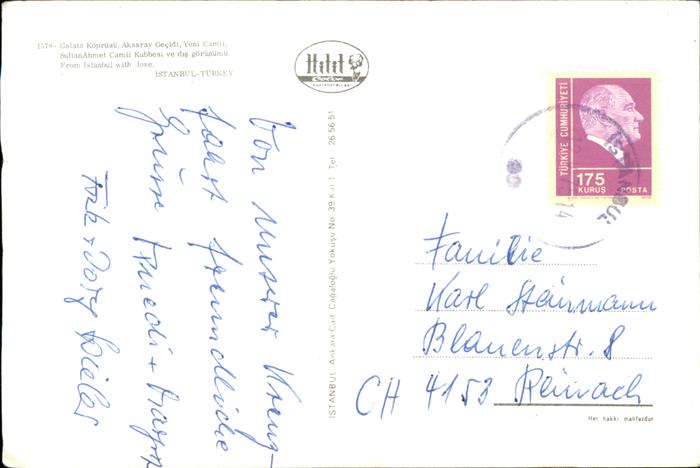 1578- Galata Köprüsü, Aksaray Geçidi, Yeni Camii,
SultanAhmet Camii Kubbesi ve dış görünümü.
From İstanbul with love.
İSTANBUL-TÜRKEY
Hitit
Color
KARTPOSTALLARI
İSTANBUL Ankara Cad. Cağaloğlu Yokuşu No. 39 Kat: 1 Tel: 26 56 51
Von unserer Kreuz-
fahrt freundliche
Grüsse
TÜRKİYE CUMHURİYETİ
175
KURUŞ
POSTA
İSTANBUL
Familie
Karl Steinmann
Blauenstr. 8
CH 4153 Reinach
Her hakkı mahfuzdur